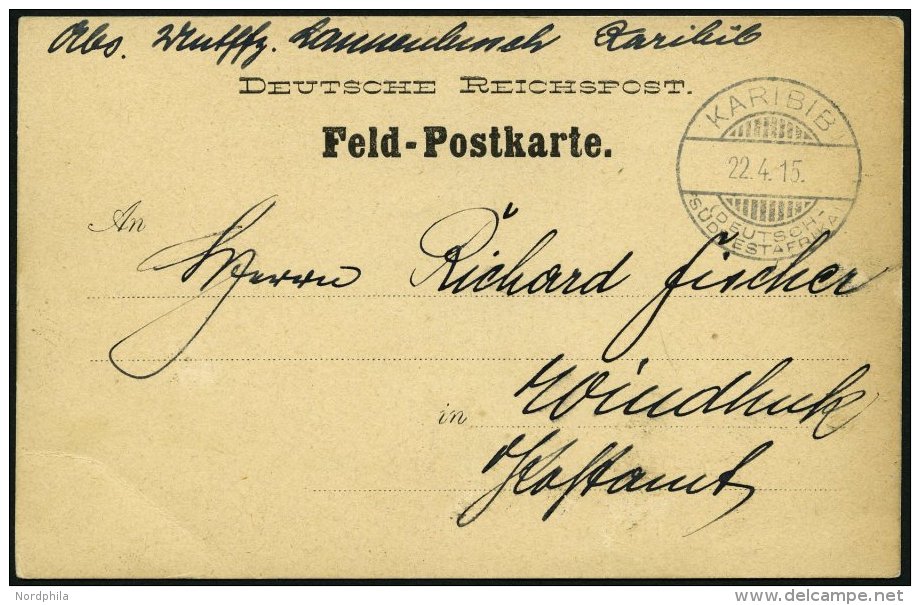 Abs. Tannenbusch Karibib
DEUTSCHE REICHSPOST.
Feld-Postkarte.
KARIBIB
22.4.15.
(DEUTSCH-
SÜDWESTAFRIKA)
An
Herrn Richard Fischer
in Windhuk
Postamt
Nordphila
delcampe.net